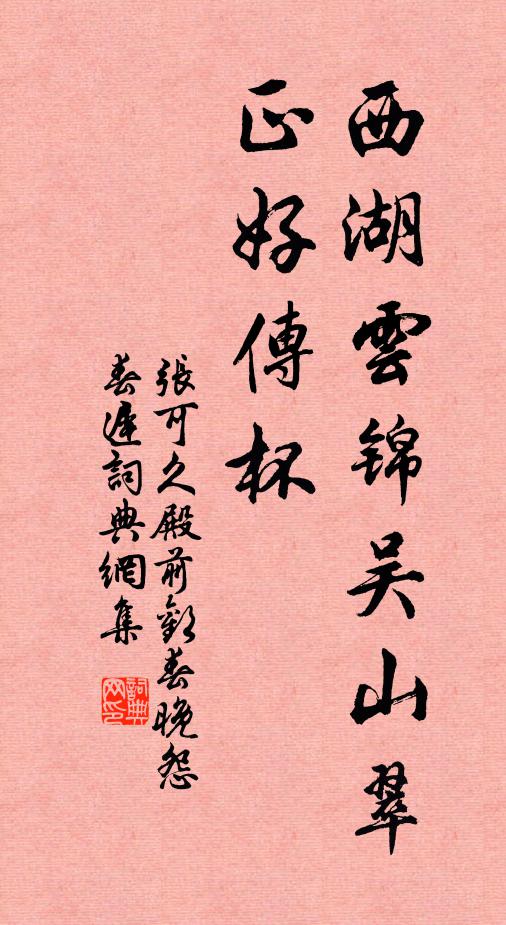 西湖雲锦吴山翠
正好傳杯
張可久殿前歡春晚怨
春遲詞典網集
詞典
网印